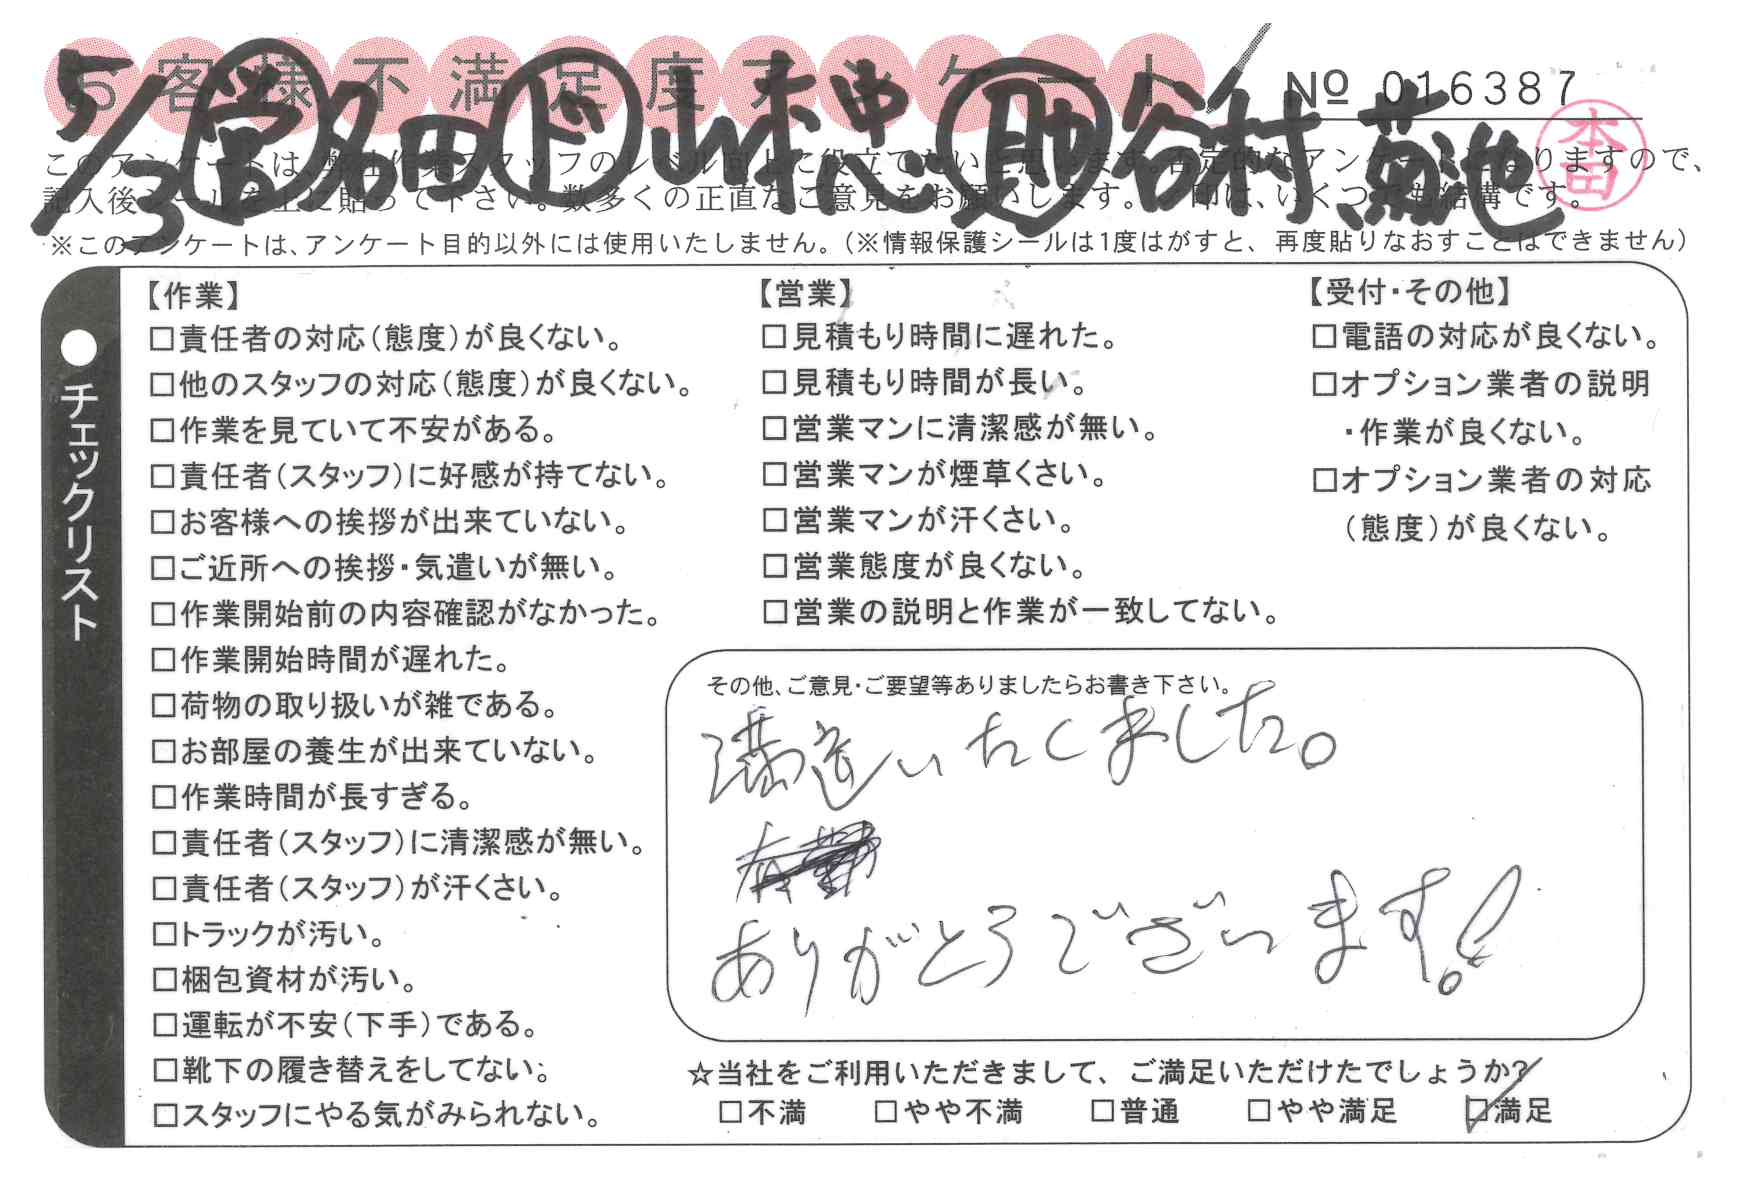 お客様不満足度アンケート
№ 016387
5/3 営 名田 ド 山本忠 助 谷村、菊池
本田
このアンケートは、弊社作業スタッフのレベル向上に役立てたいと思います。否定的なアンケートになりますので、
記入後シールを上に貼って下さい。数多くの正直なご意見をお願いします。✓印は、いくつでも結構です。
※このアンケートは、アンケート目的以外には使用いたしません。(※情報保護シールは1度はがすと、再度貼りなおすことはできません)
●チェックリスト
【作業】
□責任者の対応(態度)が良くない。
□他のスタッフの対応(態度)が良くない。
□作業を見ていて不安がある。
□責任者(スタッフ)に好感が持てない。
□お客様への挨拶が出来ていない。
□ご近所への挨拶・気遣いが無い。
□作業開始前の内容確認がなかった。
□作業開始時間が遅れた。
□荷物の取り扱いが雑である。
□お部屋の養生が出来ていない。
□作業時間が長すぎる。
□責任者(スタッフ)に清潔感が無い。
□責任者(スタッフ)が汗くさい。
□トラックが汚い。
□梱包資材が汚い。
□運転が不安(下手)である。
□靴下の履き替えをしてない。
□スタッフにやる気がみられない。
【営業】
□見積もり時間に遅れた。
□見積もり時間が長い。
□営業マンに清潔感が無い。
□営業マンが煙草くさい。
□営業マンが汗くさい。
□営業態度が良くない。
□営業の説明と作業が一致してない。
【受付・その他】
□電話の対応が良くない。
□オプション業者の説明
・作業が良くない。
□オプション業者の対応
(態度)が良くない。
その他、ご意見・ご要望等ありましたらお書き下さい。
満足いたしました。
ありがとうございます!
☆当社をご利用いただきまして、ご満足いただけたでしょうか?
□不満 □やや不満 □普通 □やや満足 ☑満足